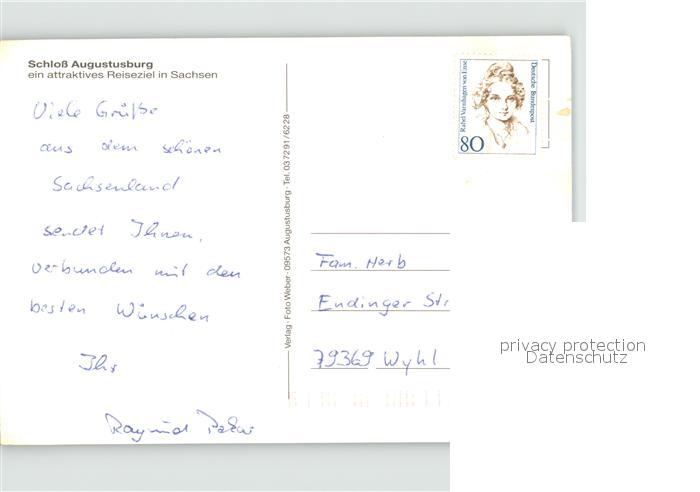 Schloß Augustusburg
ein attraktives Reiseziel in Sachsen
Viele Grüße
aus dem schönen
Sachsenland
sendet Ihnen,
verbunden mit den
besten Wünschen
Ihr
Verlag · Foto Weber · 09573 Augustusburg · Tel. 037291/6228
Rahel Varnhagen von Ense
Deutsche Bundespost
80
Fam. Herb
Endinger Str
79369 Wyhl
privacy protection
Datenschutz